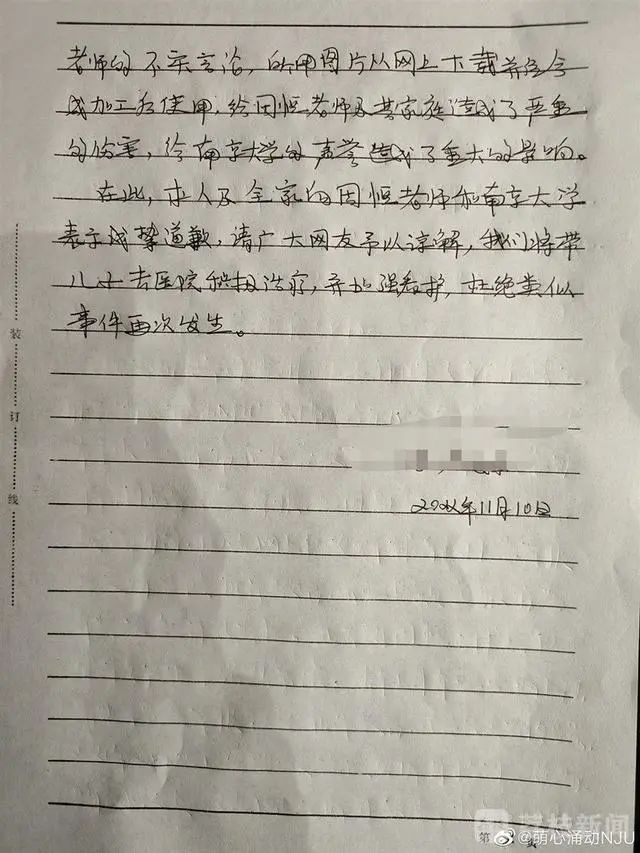 老师的不实言论,所用图片从网上下载并合
成加工后使用,给周恒老师及其家庭造成了严重
的伤害,给南京大学的声誉造成了重大的影响。
在此,本人及全家向周恒老师和南京大学
表示诚挚道歉,请广大网友予以谅解,我们将带
儿子去医院积极治疗,并加强看护,杜绝类似
事件再次发生。
装
订
线
年11月10日
第 页
荔枝新闻
@萌心涌动NJU